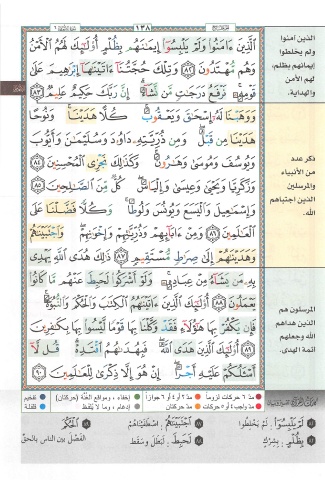 ١٣٨
الَّذِينَ ءَامَنُوا۟ وَلَمْ يَلْبِسُوٓا۟ إِيمَـٰنَهُم بِظُلْمٍ أُو۟لَـٰٓئِكَ لَهُمُ ٱلْأَمْنُ
وَهُم مُّهْتَدُونَ ﴿٨٢﴾ وَتِلْكَ حُجَّتُنَآ ءَاتَيْنَـٰهَآ إِبْرَٰهِيمَ عَلَىٰ
قَوْمِهِۦ ۚ نَرْفَعُ دَرَجَـٰتٍ مَّن نَّشَآءُ ۗ إِنَّ رَبَّكَ حَكِيمٌ عَلِيمٌ ﴿٨٣﴾
وَوَهَبْنَا لَهُۥٓ إِسْحَـٰقَ وَيَعْقُوبَ ۚ كُلًّا هَدَيْنَا ۚ وَنُوحًا
هَدَيْنَا مِن قَبْلُ ۖ وَمِن ذُرِّيَّتِهِۦ دَاوُۥدَ وَسُلَيْمَـٰنَ وَأَيُّوبَ
وَيُوسُفَ وَمُوسَىٰ وَهَـٰرُونَ ۚ وَكَذَٰلِكَ نَجْزِى ٱلْمُحْسِنِينَ ﴿٨٤﴾
وَزَكَرِيَّا وَيَحْيَىٰ وَعِيسَىٰ وَإِلْيَاسَ ۖ كُلٌّ مِّنَ ٱلصَّـٰلِحِينَ ﴿٨٥﴾
وَإِسْمَـٰعِيلَ وَٱلْيَسَعَ وَيُونُسَ وَلُوطًا ۚ وَكُلًّا فَضَّلْنَا عَلَى
ٱلْعَـٰلَمِينَ ﴿٨٦﴾ وَمِنْ ءَابَآئِهِمْ وَذُرِّيَّـٰتِهِمْ وَإِخْوَٰنِهِمْ ۖ وَٱجْتَبَيْنَـٰهُمْ
وَهَدَيْنَـٰهُمْ إِلَىٰ صِرَٰطٍ مُّسْتَقِيمٍ ﴿٨٧﴾ ذَٰلِكَ هُدَى ٱللَّهِ يَهْدِى
بِهِۦ مَن يَشَآءُ مِنْ عِبَادِهِۦ ۚ وَلَوْ أَشْرَكُوا۟ لَحَبِطَ عَنْهُم مَّا كَانُوا۟
يَعْمَلُونَ ﴿٨٨﴾ أُو۟لَـٰٓئِكَ ٱلَّذِينَ ءَاتَيْنَـٰهُمُ ٱلْكِتَـٰبَ وَٱلْحُكْمَ وَٱلنُّبُوَّةَ ۚ
فَإِن يَكْفُرْ بِهَا هَـٰٓؤُلَآءِ فَقَدْ وَكَّلْنَا بِهَا قَوْمًا لَّيْسُوا۟ بِهَا بِكَـٰفِرِينَ
﴿٨٩﴾ أُو۟لَـٰٓئِكَ ٱلَّذِينَ هَدَى ٱللَّهُ ۖ فَبِهُدَىٰهُمُ ٱقْتَدِهْ ۗ قُل لَّآ
أَسْـَٔلُكُمْ عَلَيْهِ أَجْرًا ۖ إِنْ هُوَ إِلَّا ذِكْرَىٰ لِلْعَـٰلَمِينَ ﴿٩٠﴾
الذين آمنوا
ولم يخلطوا
إيمانهم بظلم،
لهم الأمن
والهداية.
ذكر عدد
من الأنبياء
والمرسلين
الذين اجتباهم
الله.
المرسلون هم
الذين هداهم
الله وجعلهم
أئمة الهدى.
مدّ ٦ حركات لزوماً
مدّ ٢ أو ٤ أو ٦ جوازاً
إخفاء، ومواقع الغنّة (حركتان)
تفخيم
مدّ واجب ٤ أو ٥ حركات
مدّ حركتان
إدغام، وما لا يُلفظ
قلقلة
لَمْ يَلْبِسُوا: لَمْ يَخْلِطُوا
بِظُلْمٍ: بِشِرْكٍ
اجْتَبَيْنَاهُمْ: اصْطَفَيْنَاهُمْ
لَحَبِطَ: لَبَطَلَ وَسَقَطَ
الْحُكْمَ:
الفَصْلَ بين الناس بالحقّ